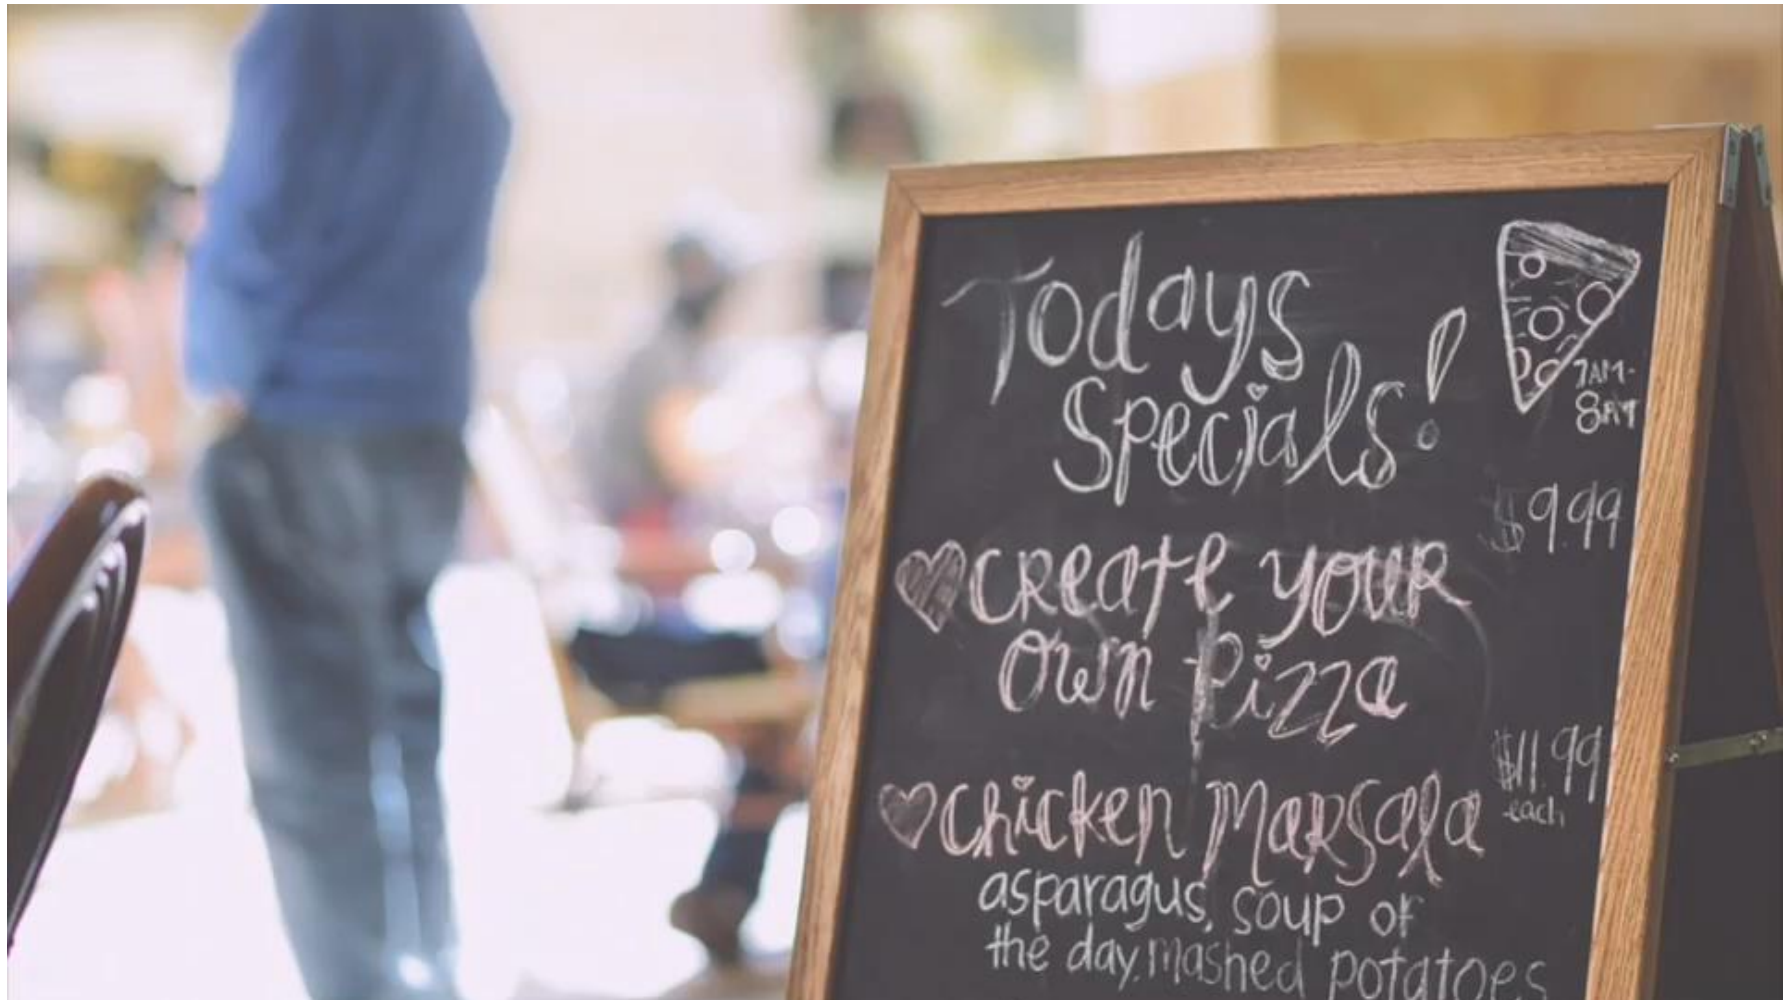 Todays
Specials!
7AM-
8PM
$9.99
Create your
own Pizza
$11.99
each
Chicken Marsala
asparagus, soup of
the day, mashed potatoes